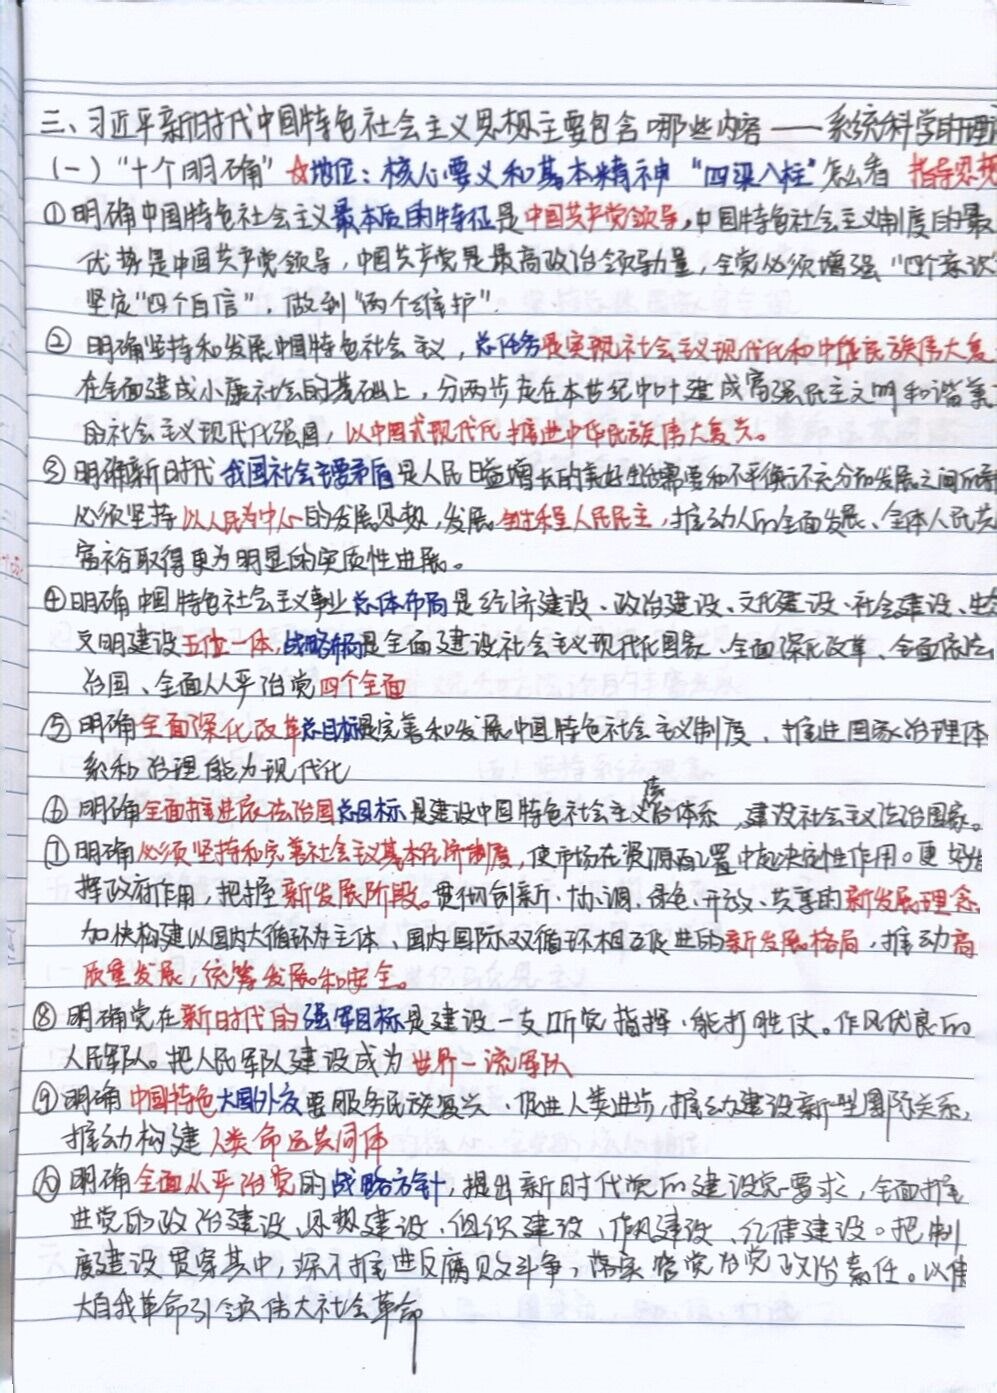 三、习近平新时代中国特色社会主义思想主要包含哪些内容——系统科学的理
(一)“十个明确”☆地位：核心要义和基本精神 “四梁八柱”怎么看 指导思想
①明确中国特色社会主义最本质的特征是中国共产党领导，中国特色社会主义制度的最
优势是中国共产党领导，中国共产党是最高政治领导力量，全党必须增强“四个意识
坚定“四个自信”，做到“两个维护”.
② 明确坚持和发展中国特色社会主义，总任务是实现社会主义现代化和中华民族伟大复
在全面建成小康社会的基础上，分两步走在本世纪中叶建成富强民主文明和谐美
的社会主义现代化强国，以中国式现代化推进中华民族伟大复兴。
③明确新时代我国社会主要矛盾是人民日益增长的美好生活需要和不平衡不充分的发展之间的矛
必须坚持以人民为中心的发展思想，发展全过程人民民主，推动人的全面发展、全体人民共
富裕取得更为明显的实质性进展。
④明确中国特色社会主义事业总体布局是经济建设、政治建设、文化建设、社会建设、生态
文明建设五位一体，战略布局是全面建设社会主义现代化国家、全面深化改革、全面依法
治国、全面从严治党四个全面
⑤明确全面深化改革总目标是完善和发展中国特色社会主义制度、推进国家治理体
系和治理能力现代化
⑥明确全面推进依法治国总目标是建设中国特色社会主义法治体系，建设社会主义法治国家。
⑦明确必须坚持和完善社会主义基本经济制度，使市场在资源配置中起决定性作用。更好发
挥政府作用，把握新发展阶段。贯彻创新、协调、绿色、开放、共享的新发展理念
加快构建以国内大循环为主体、国内国际双循环相互促进的新发展格局，推动高
质量发展，统筹发展和安全。
⑧明确党在新时代的强军目标是建设一支听党指挥、能打胜仗。作风优良的
人民军队。把人民军队建设成为世界一流军队
⑨明确中国特色大国外交要服务民族复兴、促进人类进步，推动建设新型国际关系，
推动构建人类命运共同体
⑩明确全面从严治党的战略方针，提出新时代党的建设总要求，全面推
进党的政治建设、思想建设、组织建设、作风建设、纪律建设。把制
度建设贯穿其中，深入推进反腐败斗争，落实管党治党政治责任。以伟
大自我革命引领伟大社会革命